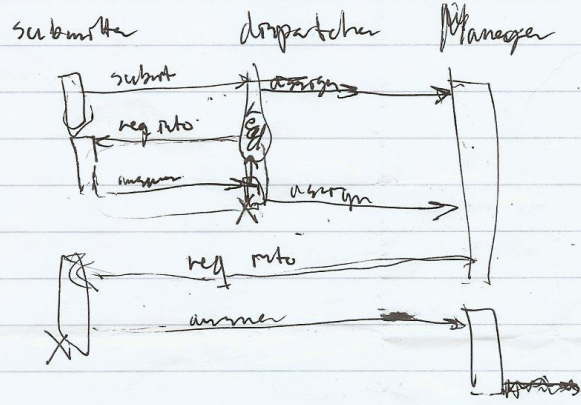 submitter dispatcher Manager
submit assign
req info
answer
assign
req info
answer